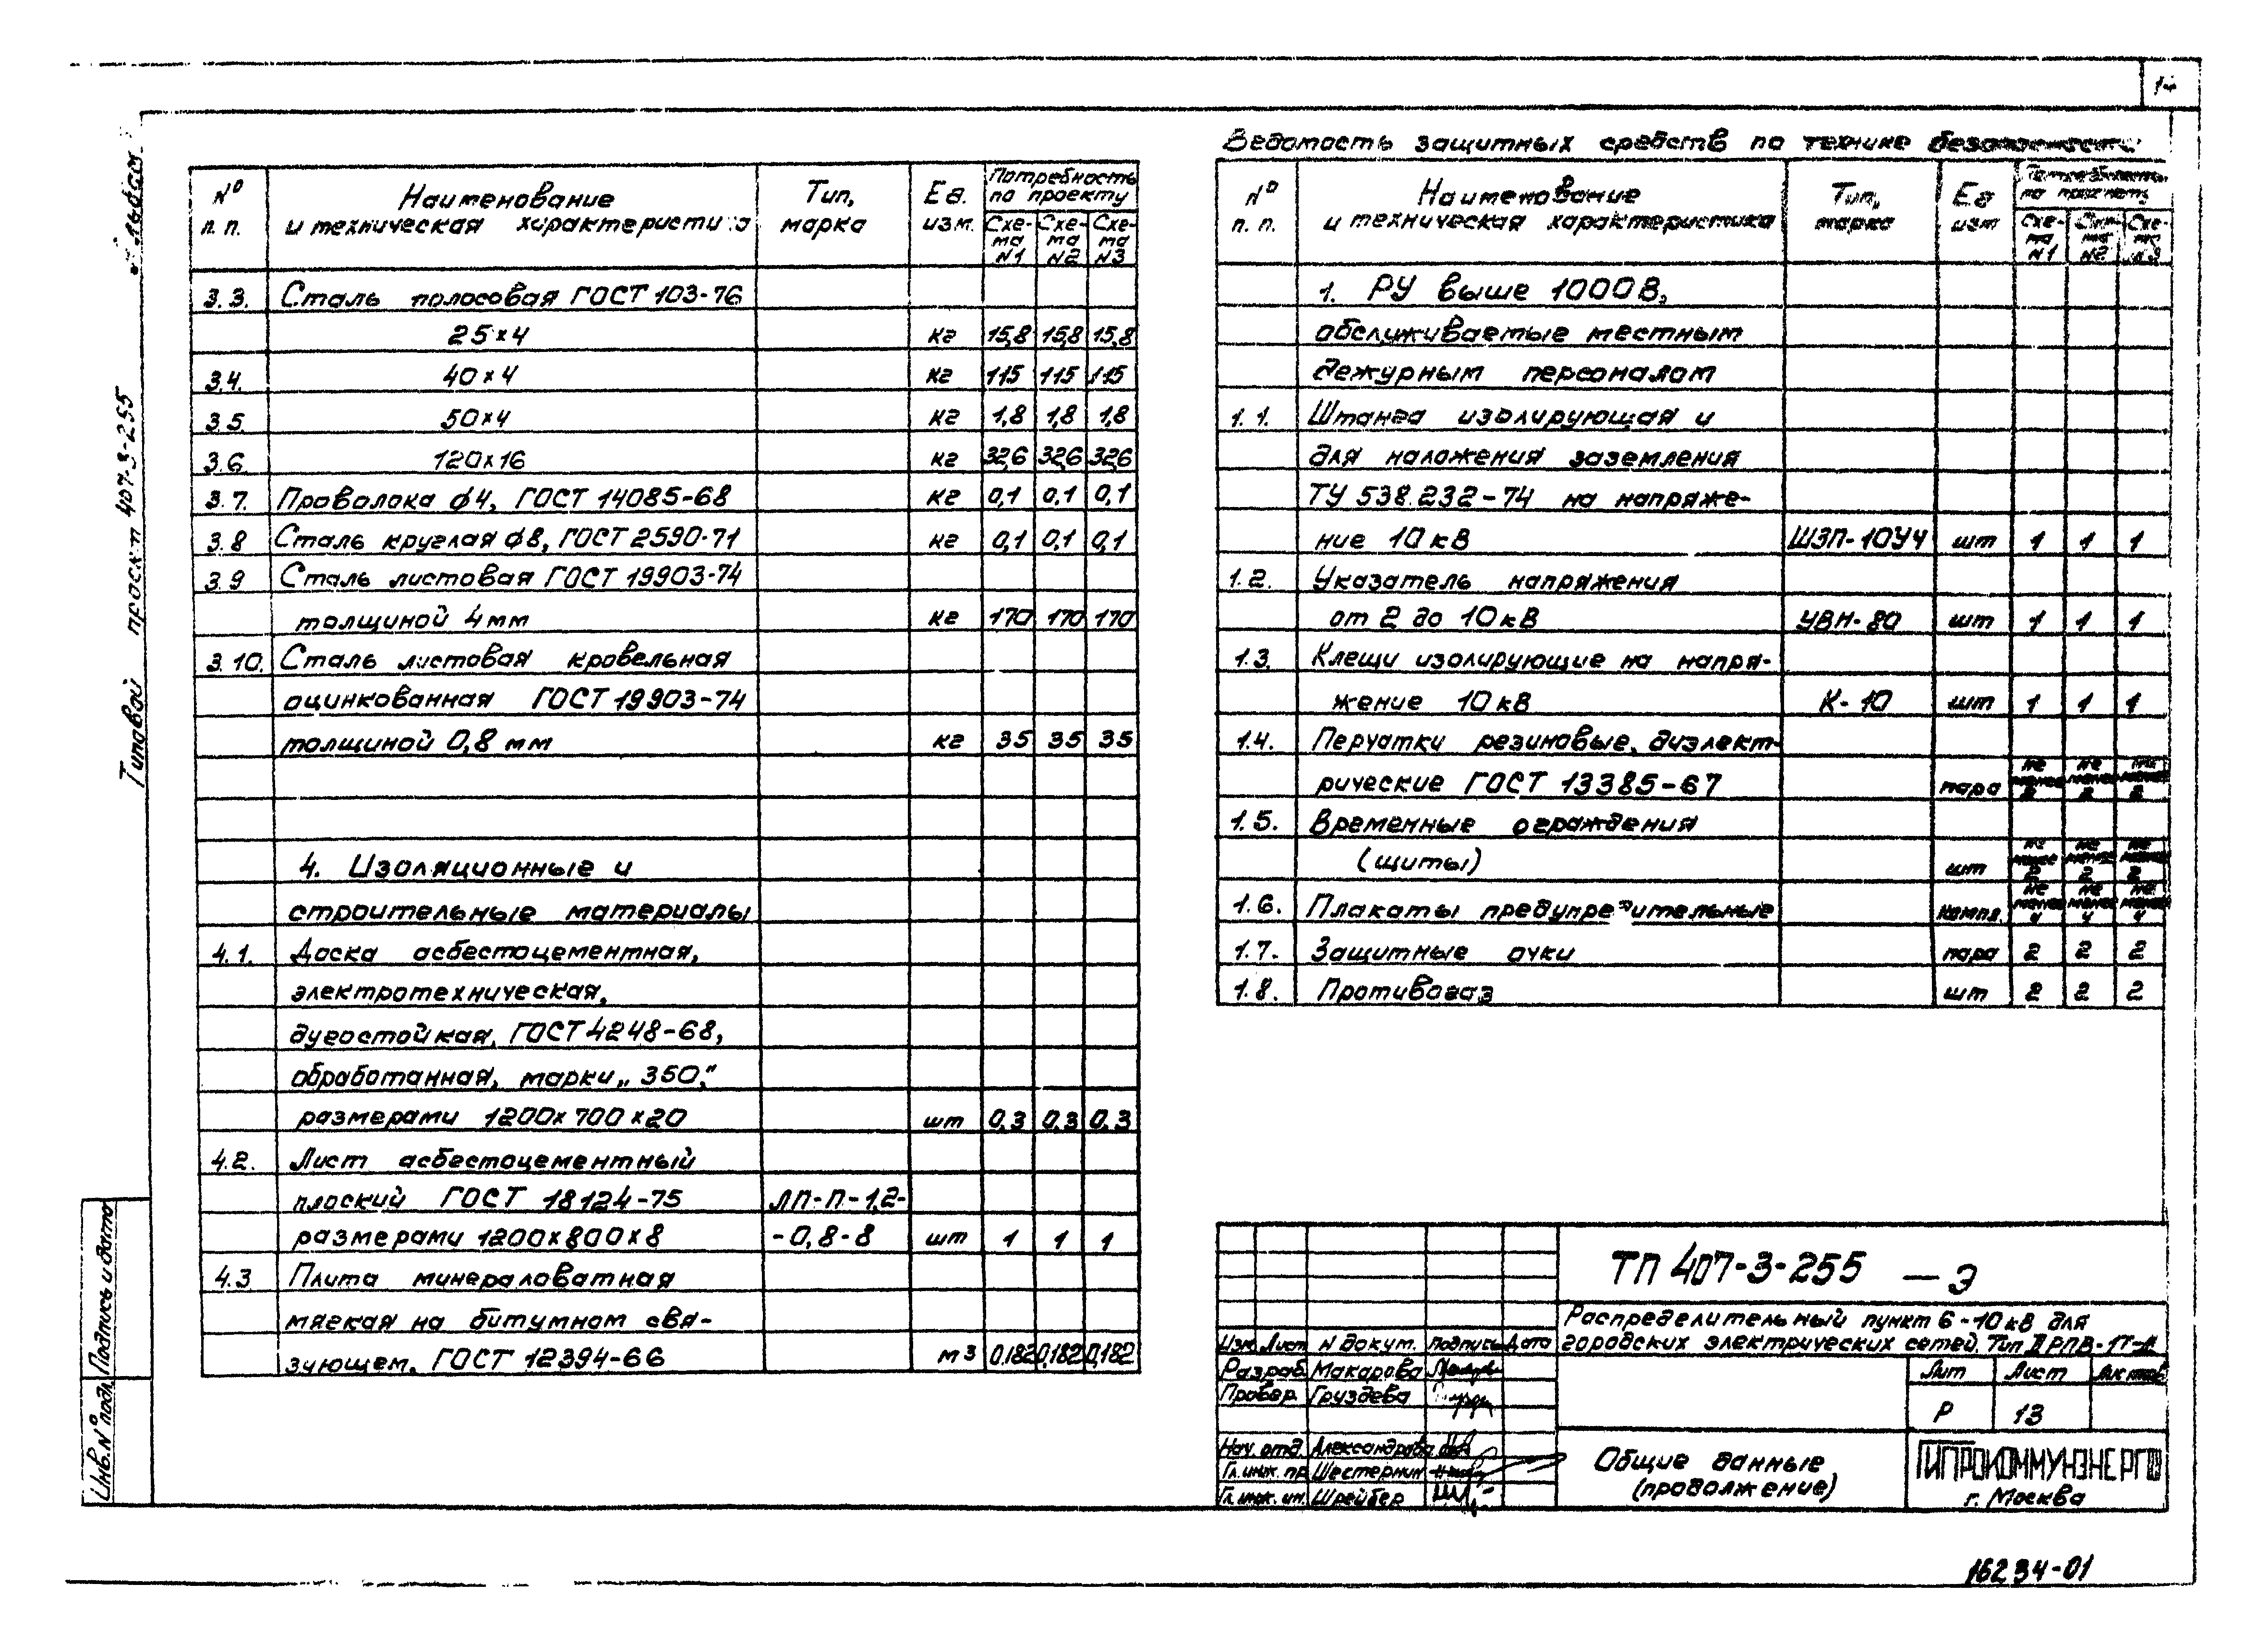 14
Типовой проект 407-3-255 Альбом
№ п.п. Наименование и техническая характеристика Тип, марка Ед. изм. Потребность по проекту Схе-ма N1 Схе-ма N2 Схе-ма N3
3.3. Сталь полосовая ГОСТ 103-76
25×4 кг 15,8 15,8 15,8
3.4. 40×4 кг 115 115 115
3.5 50×4 кг 1,8 1,8 1,8
3.6 120×16 кг 32,6 32,6 32,6
3.7. Проволока ф4, ГОСТ 14085-68 кг 0,1 0,1 0,1
3.8 Сталь круглая ф8, ГОСТ 2590-71 кг 0,1 0,1 0,1
3.9 Сталь листовая ГОСТ 19903-74
толщиной 4мм кг 170 170 170
3.10. Сталь листовая кровельная
оцинкованная ГОСТ 19903-74
толщиной 0,8 мм кг 35 35 35
4. Изоляционные и
строительные материалы
4.1. Доска асбестоцементная,
электротехническая,
дугостойкая, ГОСТ 4248-68,
обработанная, марки „350,"
размерами 1200×700×20 шт 0,3 0,3 0,3
4.2. Лист асбестоцементный
плоский ГОСТ 18124-75 ЛП-П-1,2-
размерами 1200×800×8 -0,8-8 шт 1 1 1
4.3 Плита минераловатная
мягкая на битумном свя-
зующем, ГОСТ 12394-66 м3 0,182 0,182 0,182
Ведомость защитных средств по технике безопасности
№ п.п. Наименование и техническая характеристика Тип, марка Ед изм Потребность по проекту Схе-ма N1 Схе-ма N2 Схе-ма N3
1. РУ выше 1000В,
обслуживаемые местным
дежурным персоналом
1.1. Штанга изолирующая и
для наложения заземления
ТУ 538.232-74 на напряже-
ние 10кВ ШЗП-10У4 шт 1 1 1
1.2. Указатель напряжения
от 2 до 10кВ УВН-80 шт 1 1 1
1.3. Клещи изолирующие на напря-
жение 10кВ К-10 шт 1 1 1
1.4. Перчатки резиновые, диэлект-
рические ГОСТ 13385-67 пара не менее 2 не менее 2 не менее 2
1.5. Временные ограждения
(щиты) шт не менее 2 не менее 2 не менее 2
1.6. Плакаты предупредительные компл. не менее 4 не менее 4 не менее 4
1.7. Защитные очки пара 2 2 2
1.8. Противогаз шт 2 2 2
ТП 407-3-255 — Э
Распределительный пункт 6-10кВ для
городских электрических сетей. Тип II РПВ-1Т-
Изм Лист N докум. Подпись Дата
Разраб. Макарова
Провер. Груздева
Нач. отд. Александрова
Гл. инж. пр. Шестернин
Гл. инж. ин. Шрейбер
Общие данные
(продолжение)
Лит Лист Листов
Р 13
ГИПРОКОММУНЭНЕРГО
г. Москва
Инв. № подл. Подпись и дата
16234-01